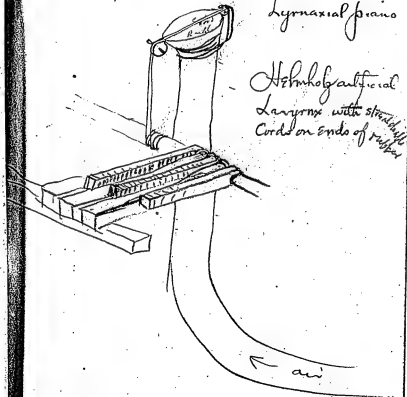 Lyrnaxial piano
Helmholz artificial
Laryrnx with stretchable
Cords on Ends of rubber
air